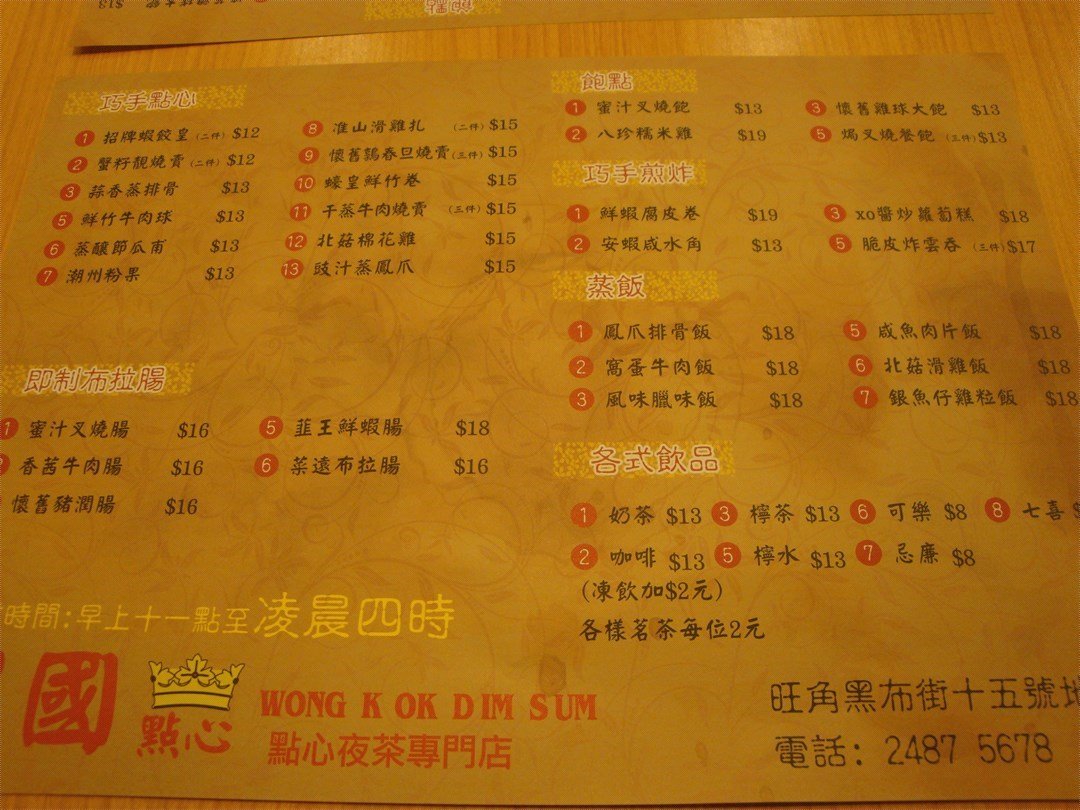 巧手點心
1 招牌蝦餃皇 (二件) $12
2 蟹籽靚燒賣 (二件) $12
3 蒜香蒸排骨 $13
5 鮮竹牛肉球 $13
6 蒸釀節瓜甫 $13
7 潮州粉果 $13
8 淮山滑雞扎 (二件) $15
9 懷舊鵪春旦燒賣 (三件) $15
10 蠔皇鮮竹卷 $15
11 干蒸牛肉燒賣 (三件) $15
12 北菇棉花雞 $15
13 豉汁蒸鳳爪 $15
即制布拉腸
1 蜜汁叉燒腸 $16
香茜牛肉腸 $16
懷舊豬潤腸 $16
5 韮王鮮蝦腸 $18
6 菜遠布拉腸 $16
飽點
1 蜜汁叉燒飽 $13
2 八珍糯米雞 $19
3 懷舊雞球大飽 $13
5 焗叉燒餐飽 (三件) $13
巧手煎炸
1 鮮蝦腐皮卷 $19
2 安蝦咸水角 $13
3 xo醬炒蘿蔔糕 $18
5 脆皮炸雲吞 (三件) $17
蒸飯
1 鳳爪排骨飯 $18
2 窩蛋牛肉飯 $18
3 風味臘味飯 $18
5 咸魚肉片飯 $18
6 北菇滑雞飯 $18
7 銀魚仔雞粒飯 $18
各式飲品
1 奶茶 $13 3 檸茶 $13 6 可樂 $8 8 七喜
2 咖啡 $13 5 檸水 $13 7 忌廉 $8
(凍飲加$2元)
各樣茗茶每位2元
時間:早上十一點至凌晨四時
國
點心
WONG KOK DIM SUM
點心夜茶專門店
旺角黑布街十五號地
電話: 2487 5678